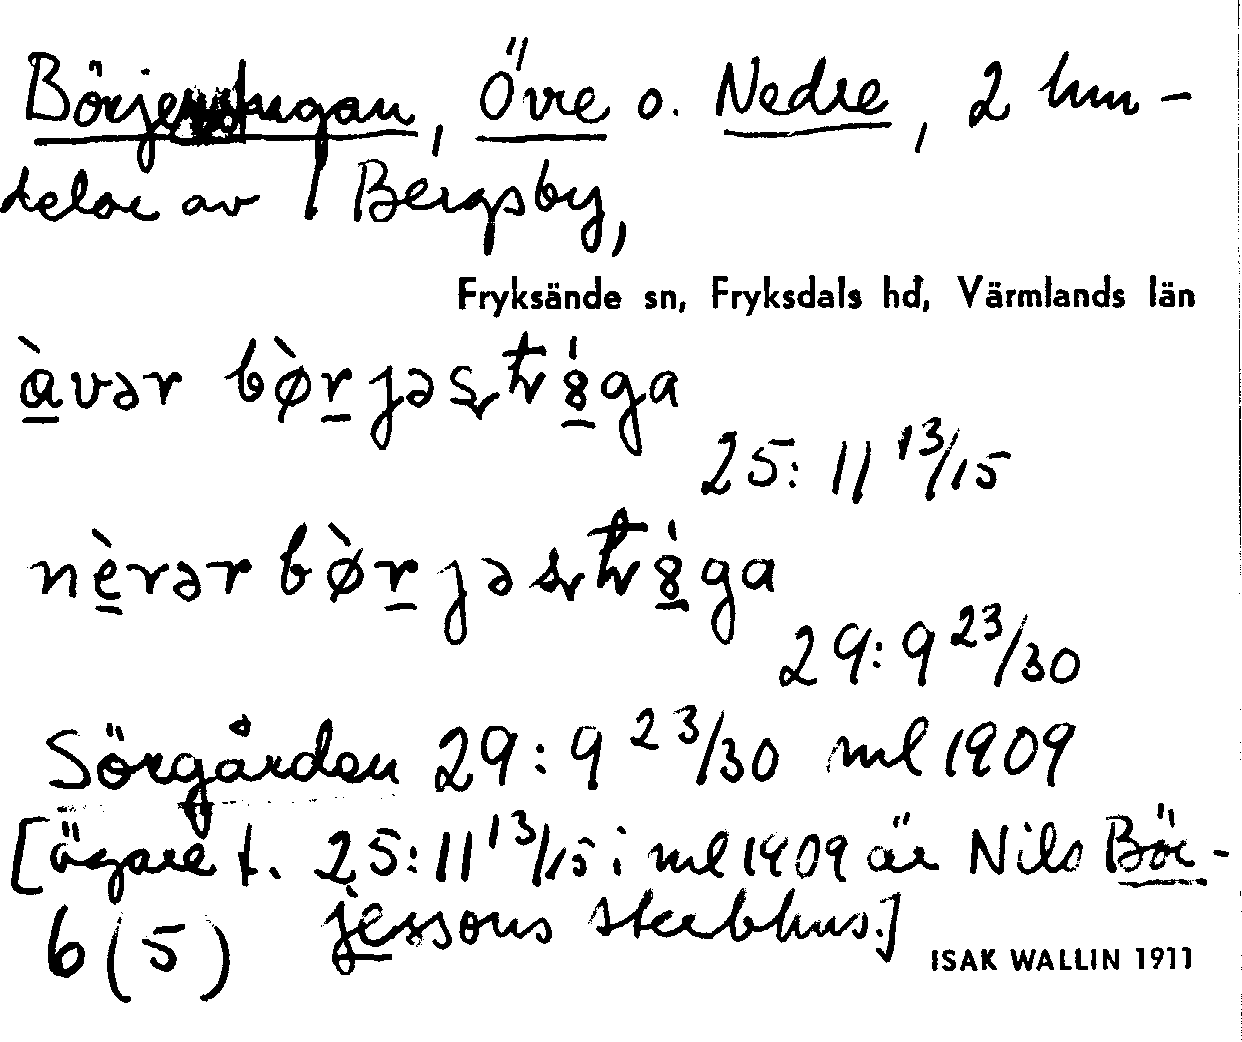 Börjestugan, Övre o. Nedre, 2 hm-
delar av 1 Bergsby,
Fryksände sn, Fryksdals hd, Värmlands län
25:11 13/15
29:9 23/30
Sörgården 29:9 23/30 ml 1909
[ägare t. 25:11 13/15 i ml 1909 är Nils Bör-
jessons sterbhus.]
6 (5)
ISAK WALLIN 1911